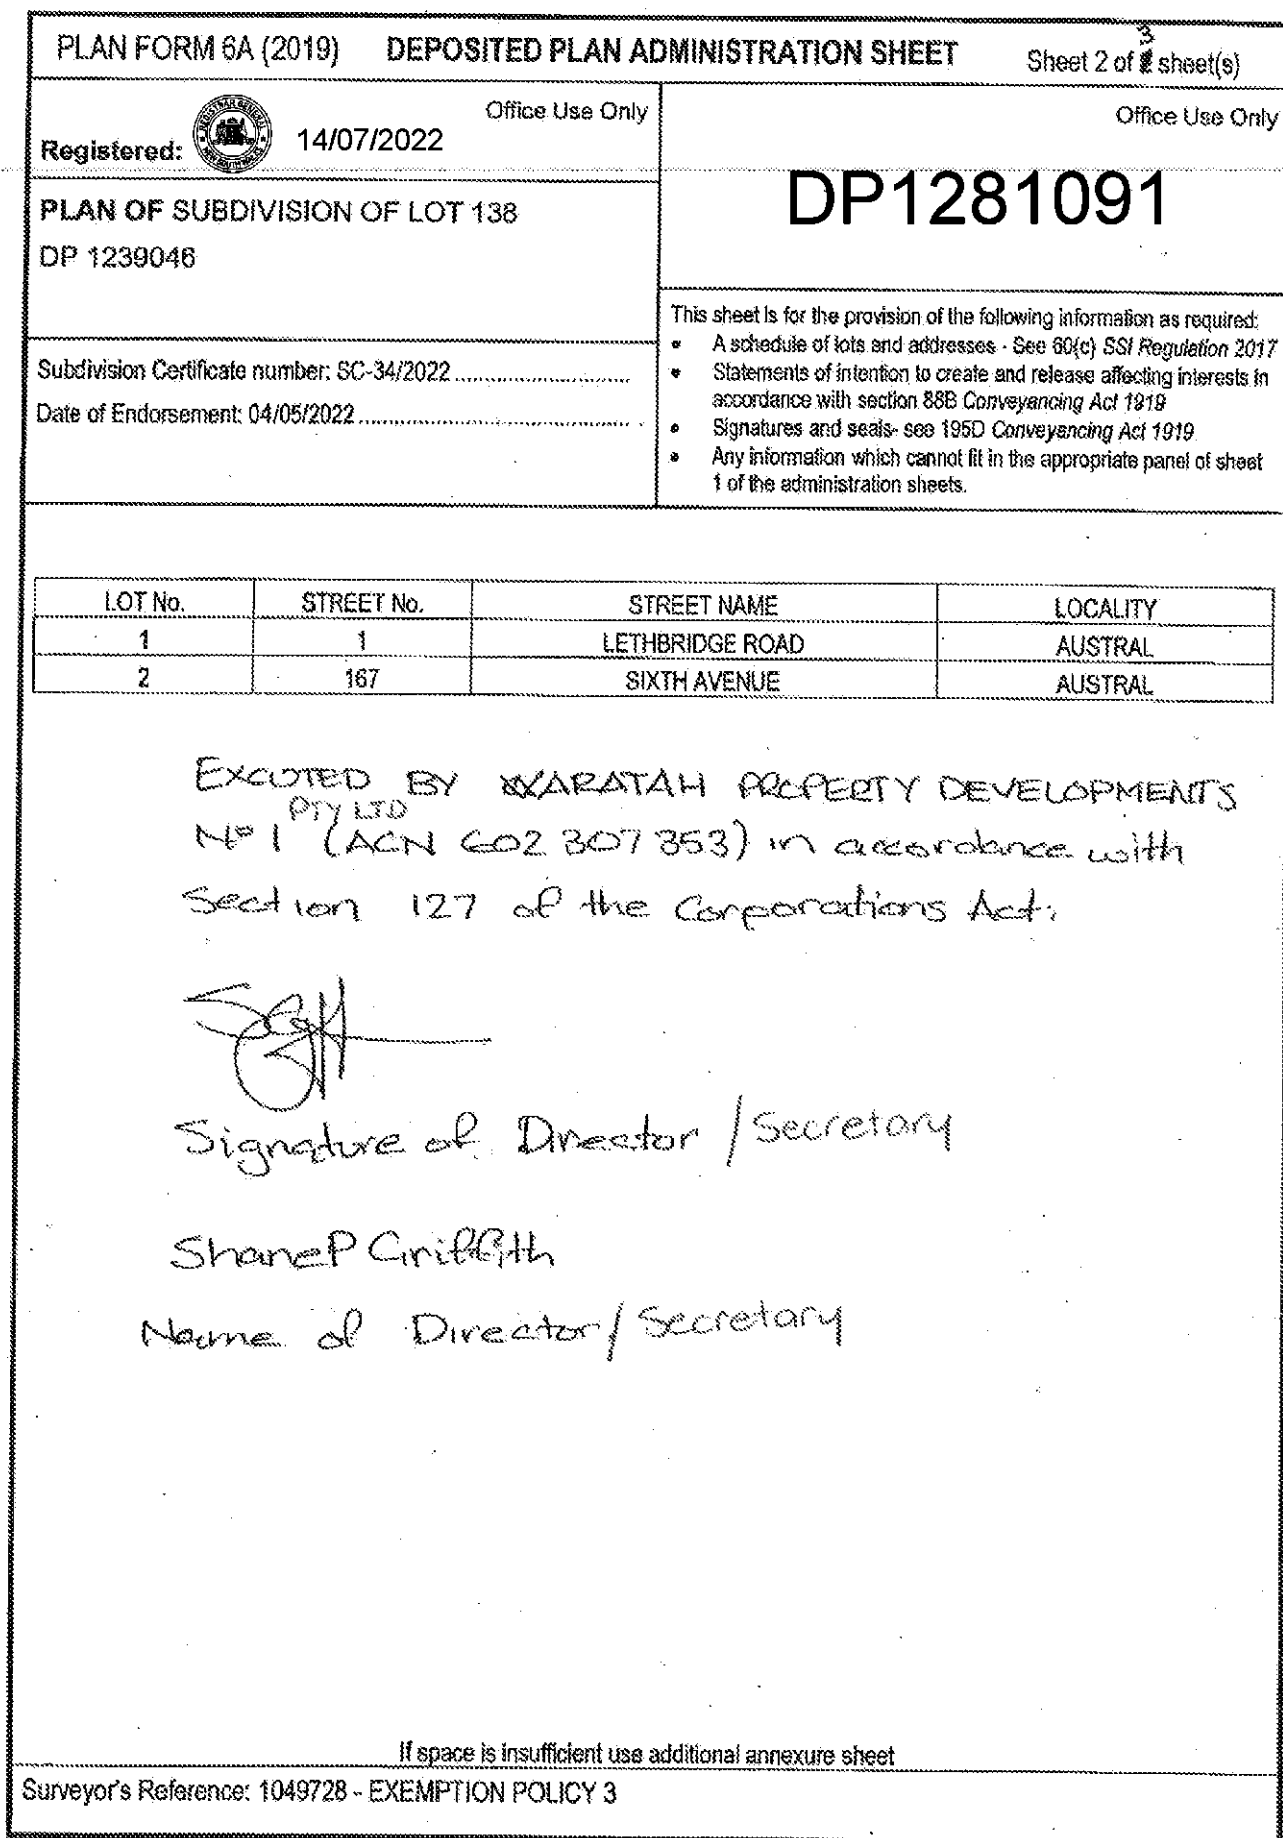 PLAN FORM 6A (2019) DEPOSITED PLAN ADMINISTRATION SHEET Sheet 2 of 3 sheet(s)
Office Use Only
Registered: 14/07/2022
REGISTRAR GENERAL
NEW SOUTH WALES
PLAN OF SUBDIVISION OF LOT 138
DP 1239046
Subdivision Certificate number: SC-34/2022
Date of Endorsement: 04/05/2022
Office Use Only
DP1281091
This sheet is for the provision of the following information as required:
• A schedule of lots and addresses - See 60(c) SSI Regulation 2017
• Statements of intention to create and release affecting interests in
accordance with section 88B Conveyancing Act 1919
• Signatures and seals- see 195D Conveyancing Act 1919
• Any information which cannot fit in the appropriate panel of sheet
1 of the administration sheets.
LOT No. STREET No. STREET NAME LOCALITY
1 1 LETHBRIDGE ROAD AUSTRAL
2 167 SIXTH AVENUE AUSTRAL
EXCUTED BY WARATAH PROPERTY DEVELOPMENTS
No 1 PTY LTD (ACN 602 307 353) in accordance with
Section 127 of the Corporations Act.
Signature of Director / Secretary
Shane P Griffith
Name of Director / Secretary
If space is insufficient use additional annexure sheet
Surveyor's Reference: 1049728 - EXEMPTION POLICY 3